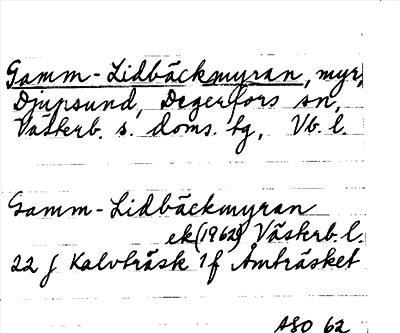 Gamm-Lidbäckmyran, myr,
Djupsund, Degerfors sn,
Västerb. s. doms. tg, Vb. l.
Gamm-Lidbäckmyran
ek (1962) Västerb. l.
22 J Kalvträsk 1f Åmträsket
ASO 62